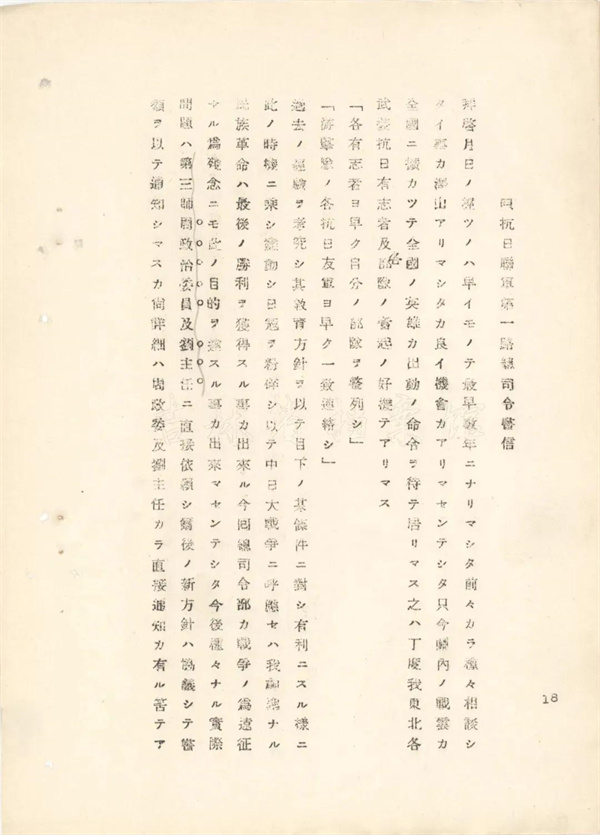 抗日聯軍第一路總司令書信
拜啓月日ノ經ツノハ早イモノテ最早數年ニナリマシタ前々カラ種々相談シ
タイ事カ澤山アリマシタカ良イ機會カアリマセンテシタ只今關內ノ戰雲カ
全國ニ擴カツテ全國ノ英雄カ出動ノ命令ヲ待テ居リマス之ハ丁度我東北各
武裝抗日有志者及各部隊ノ奮起ノ好機テアリマス
「各有志者ヨ早ク自分ノ部隊ヲ整列シ」
「游擊隊ノ各抗日友軍ヨ早ク一致連絡シ」
過去ノ經驗ヲ考究シ其敎育方針ヲ以テ目下ノ某條件ニ對シ有利ニスル樣ニ
此ノ時機ニ乘シ活動シ日寇ヲ粉碎シ以テ中日大戰爭ニ呼應セハ我ナル
民族革命ハ最後ノ勝利ヲ獲得スル事カ出來ル今回總司令部カ戰爭ノ爲遠征
セル爲殘念ニモ此ノ目的ヲ達スル事カ出來マセンテシタ今後種々ナル實際
問題ハ第三師團政治委員及劉主任ニ直接依賴シ爾後ノ新方針ハ協議シテ書
類ヲ以テ通知シマスカ尙詳細ハ周政委及劉主任カラ直接通知カ有ル筈テア
18